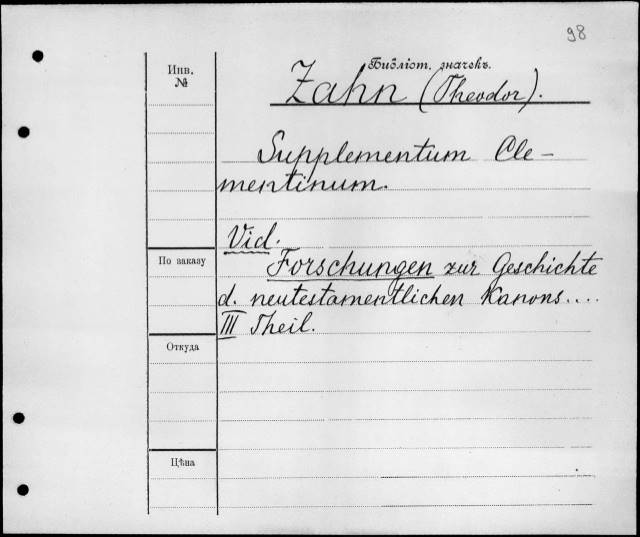 98
Инв.
№
Библіот. значекъ.
Zahn (Theodor).
Supplementum Cle-
mentinum.
Vid.
По заказу
Forschungen zur Geschichte
d. neutestamentlichen Kanons....
III Theil.
Откуда
Цѣна